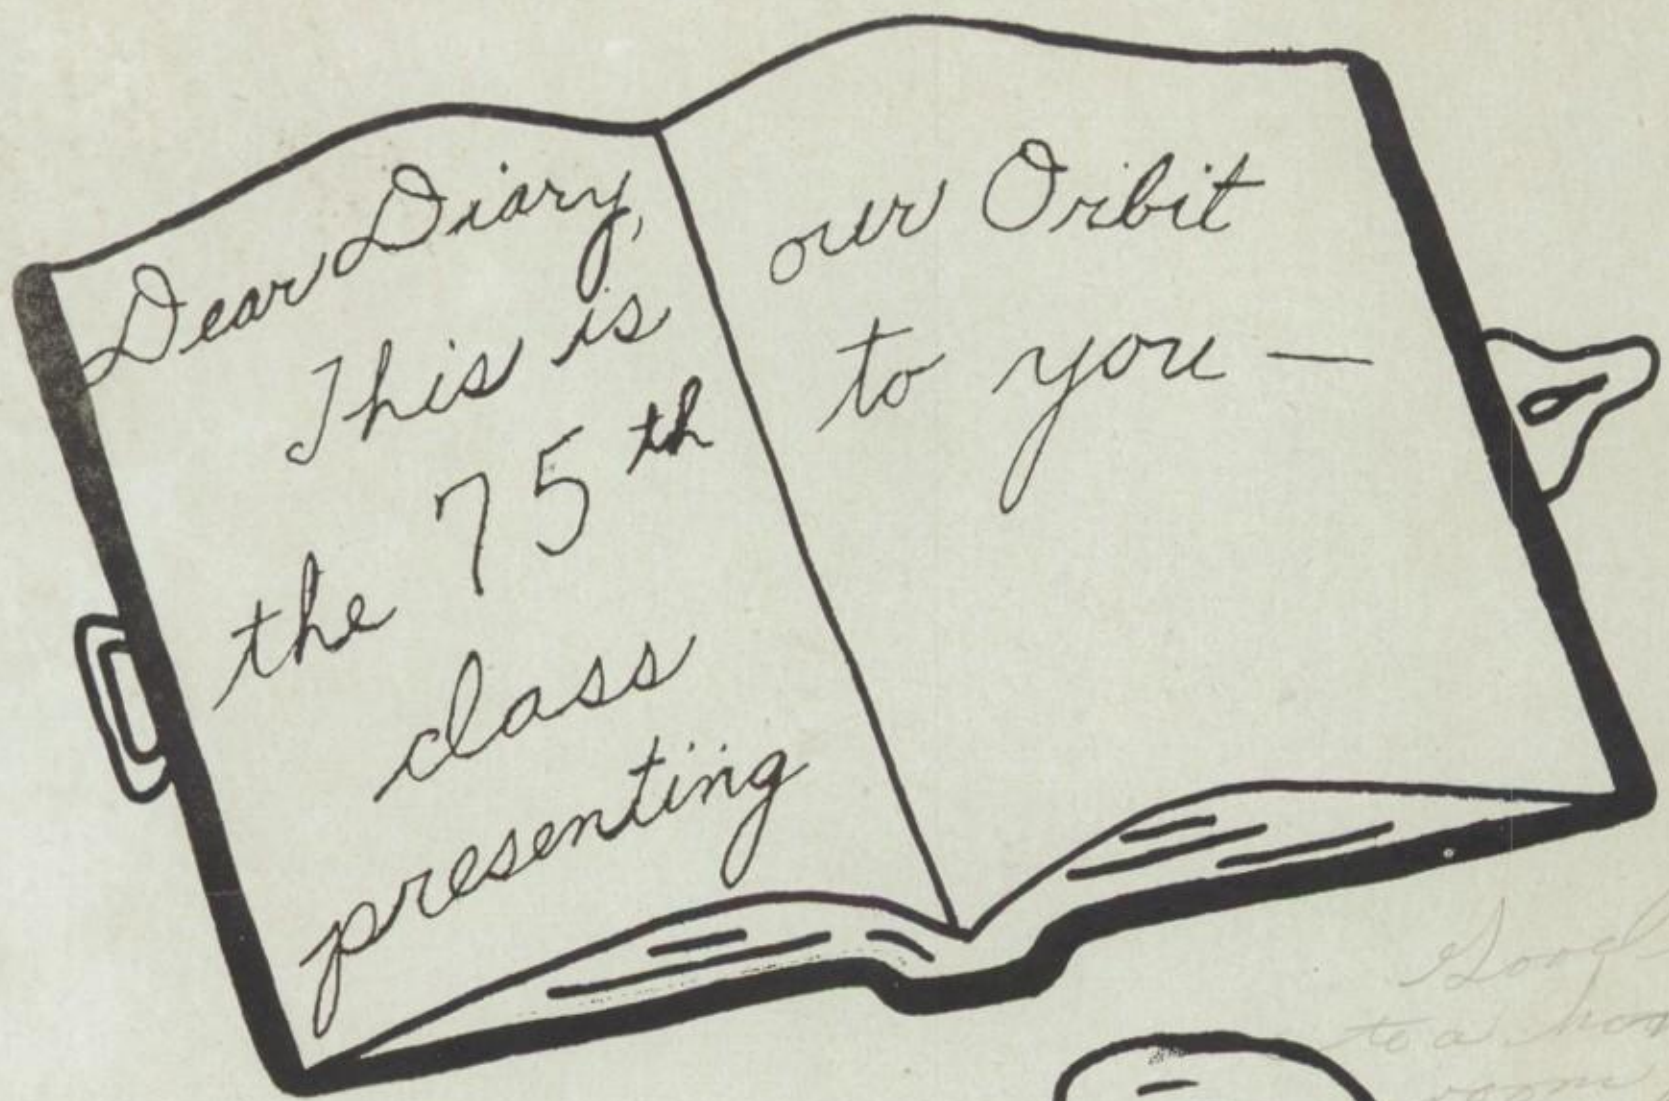 Dear Diary,
This is
the 75th
class
presenting
our Orbit
to you —
Good
to a
room